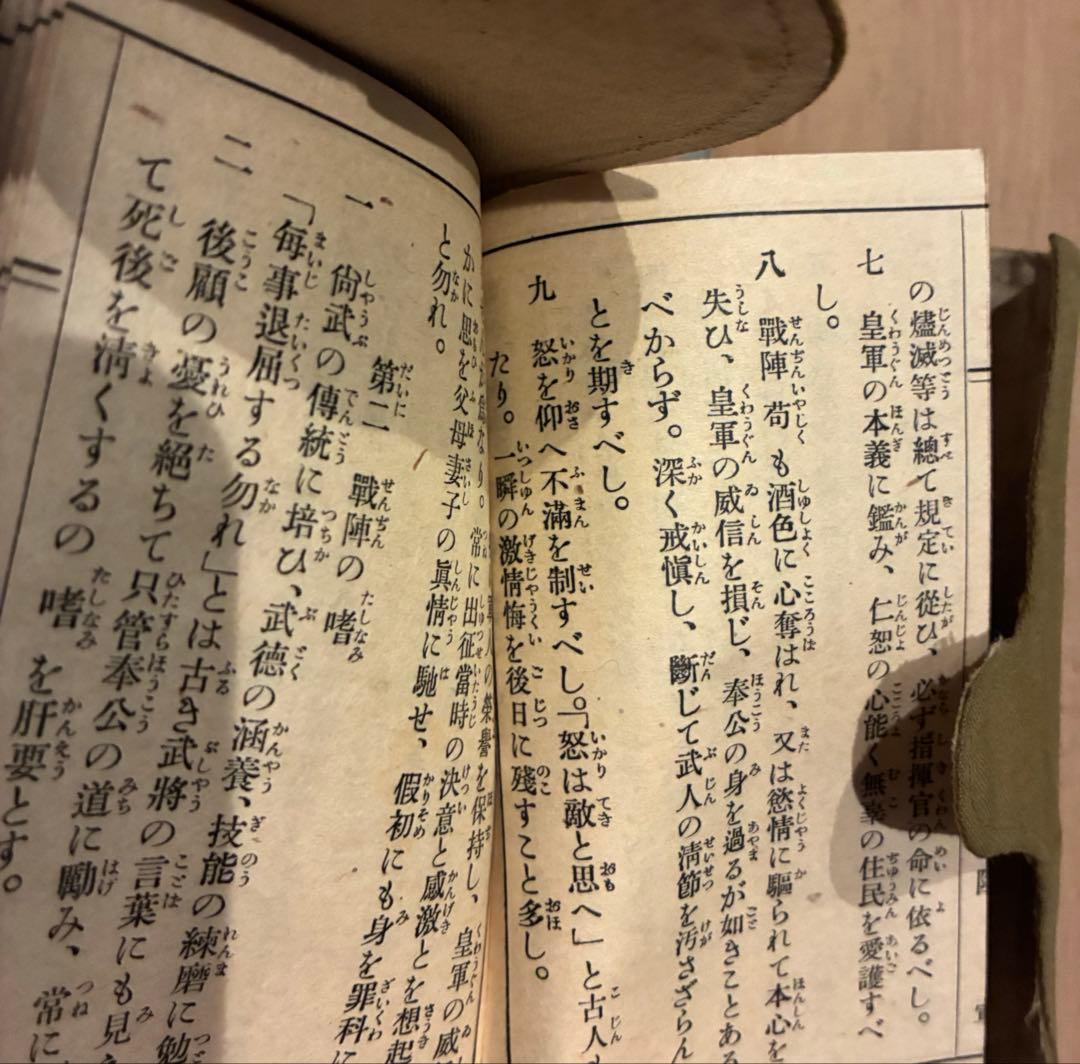 の燼滅等は總て規定に從ひ、必ず指揮官の命に依るべし。
七 皇軍の本義に鑑み、仁恕の心能く無辜の住民を愛護すべ
し。
八 戰陣苟も酒色に心奪はれ、又は慾情に驅られて本心を
失ひ、皇軍の威信を損じ、奉公の身を過るが如きことある
べからず。深く戒愼し、斷じて武人の淸節を汚さざらん
とを期すべし。
九 怒を仰へ不滿を制すべし。「怒は敵と思へ」と古人も
たり。一瞬の激情悔を後日に殘すこと多し。
なり。常に出征當時の決意と感激とを想起
の榮譽を保持し、皇軍の威
かに思を父母妻子の眞情に馳せ、假初にも身を罪科に
と勿れ。
第二 戰陣の嗜
一 尙武の傳統に培ひ、武德の涵養、技能の練磨に勉
「每事退屈する勿れ」とは古き武將の言葉にも見え
二 後顧の憂を絕ちて只管奉公の道に勵み、常に
て死後を淸くするの嗜を肝要とす。